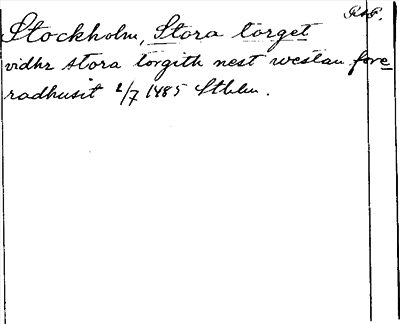 Stockholm, Stora torget
vidhr stora torgith nest westan fore
radhusit 2/7 1485 Sthlm.